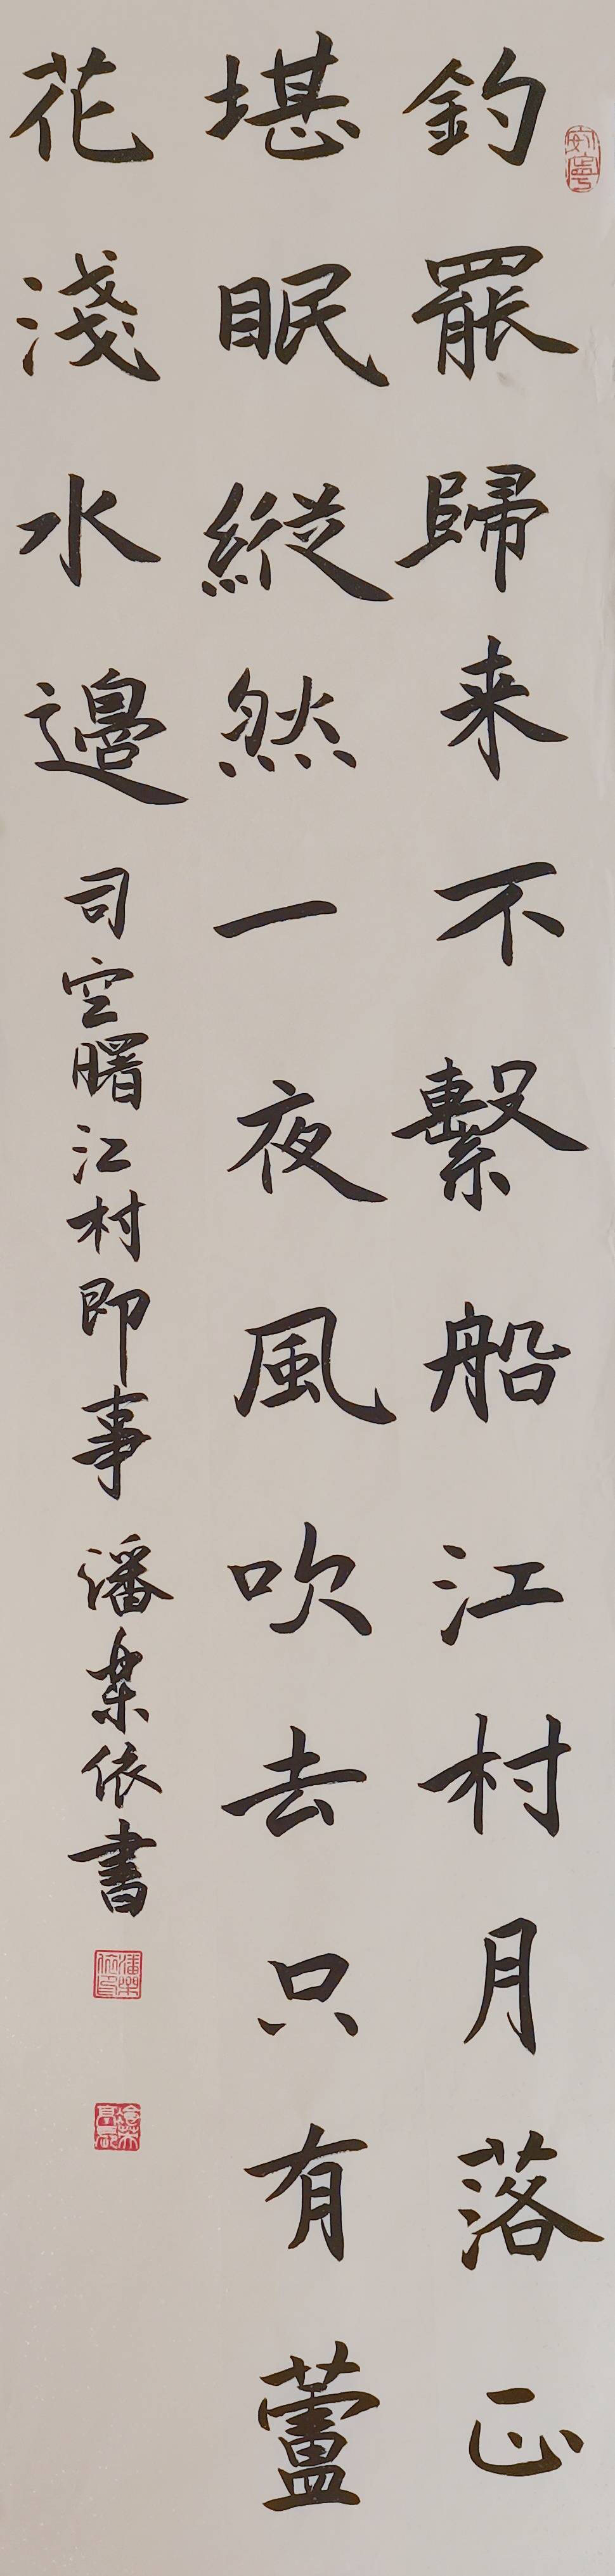 釣罷歸来不繫船江村月落正
堪眠縱然一夜風吹去只有蘆
花淺水邊
司空曙江村即事 潘樂依書